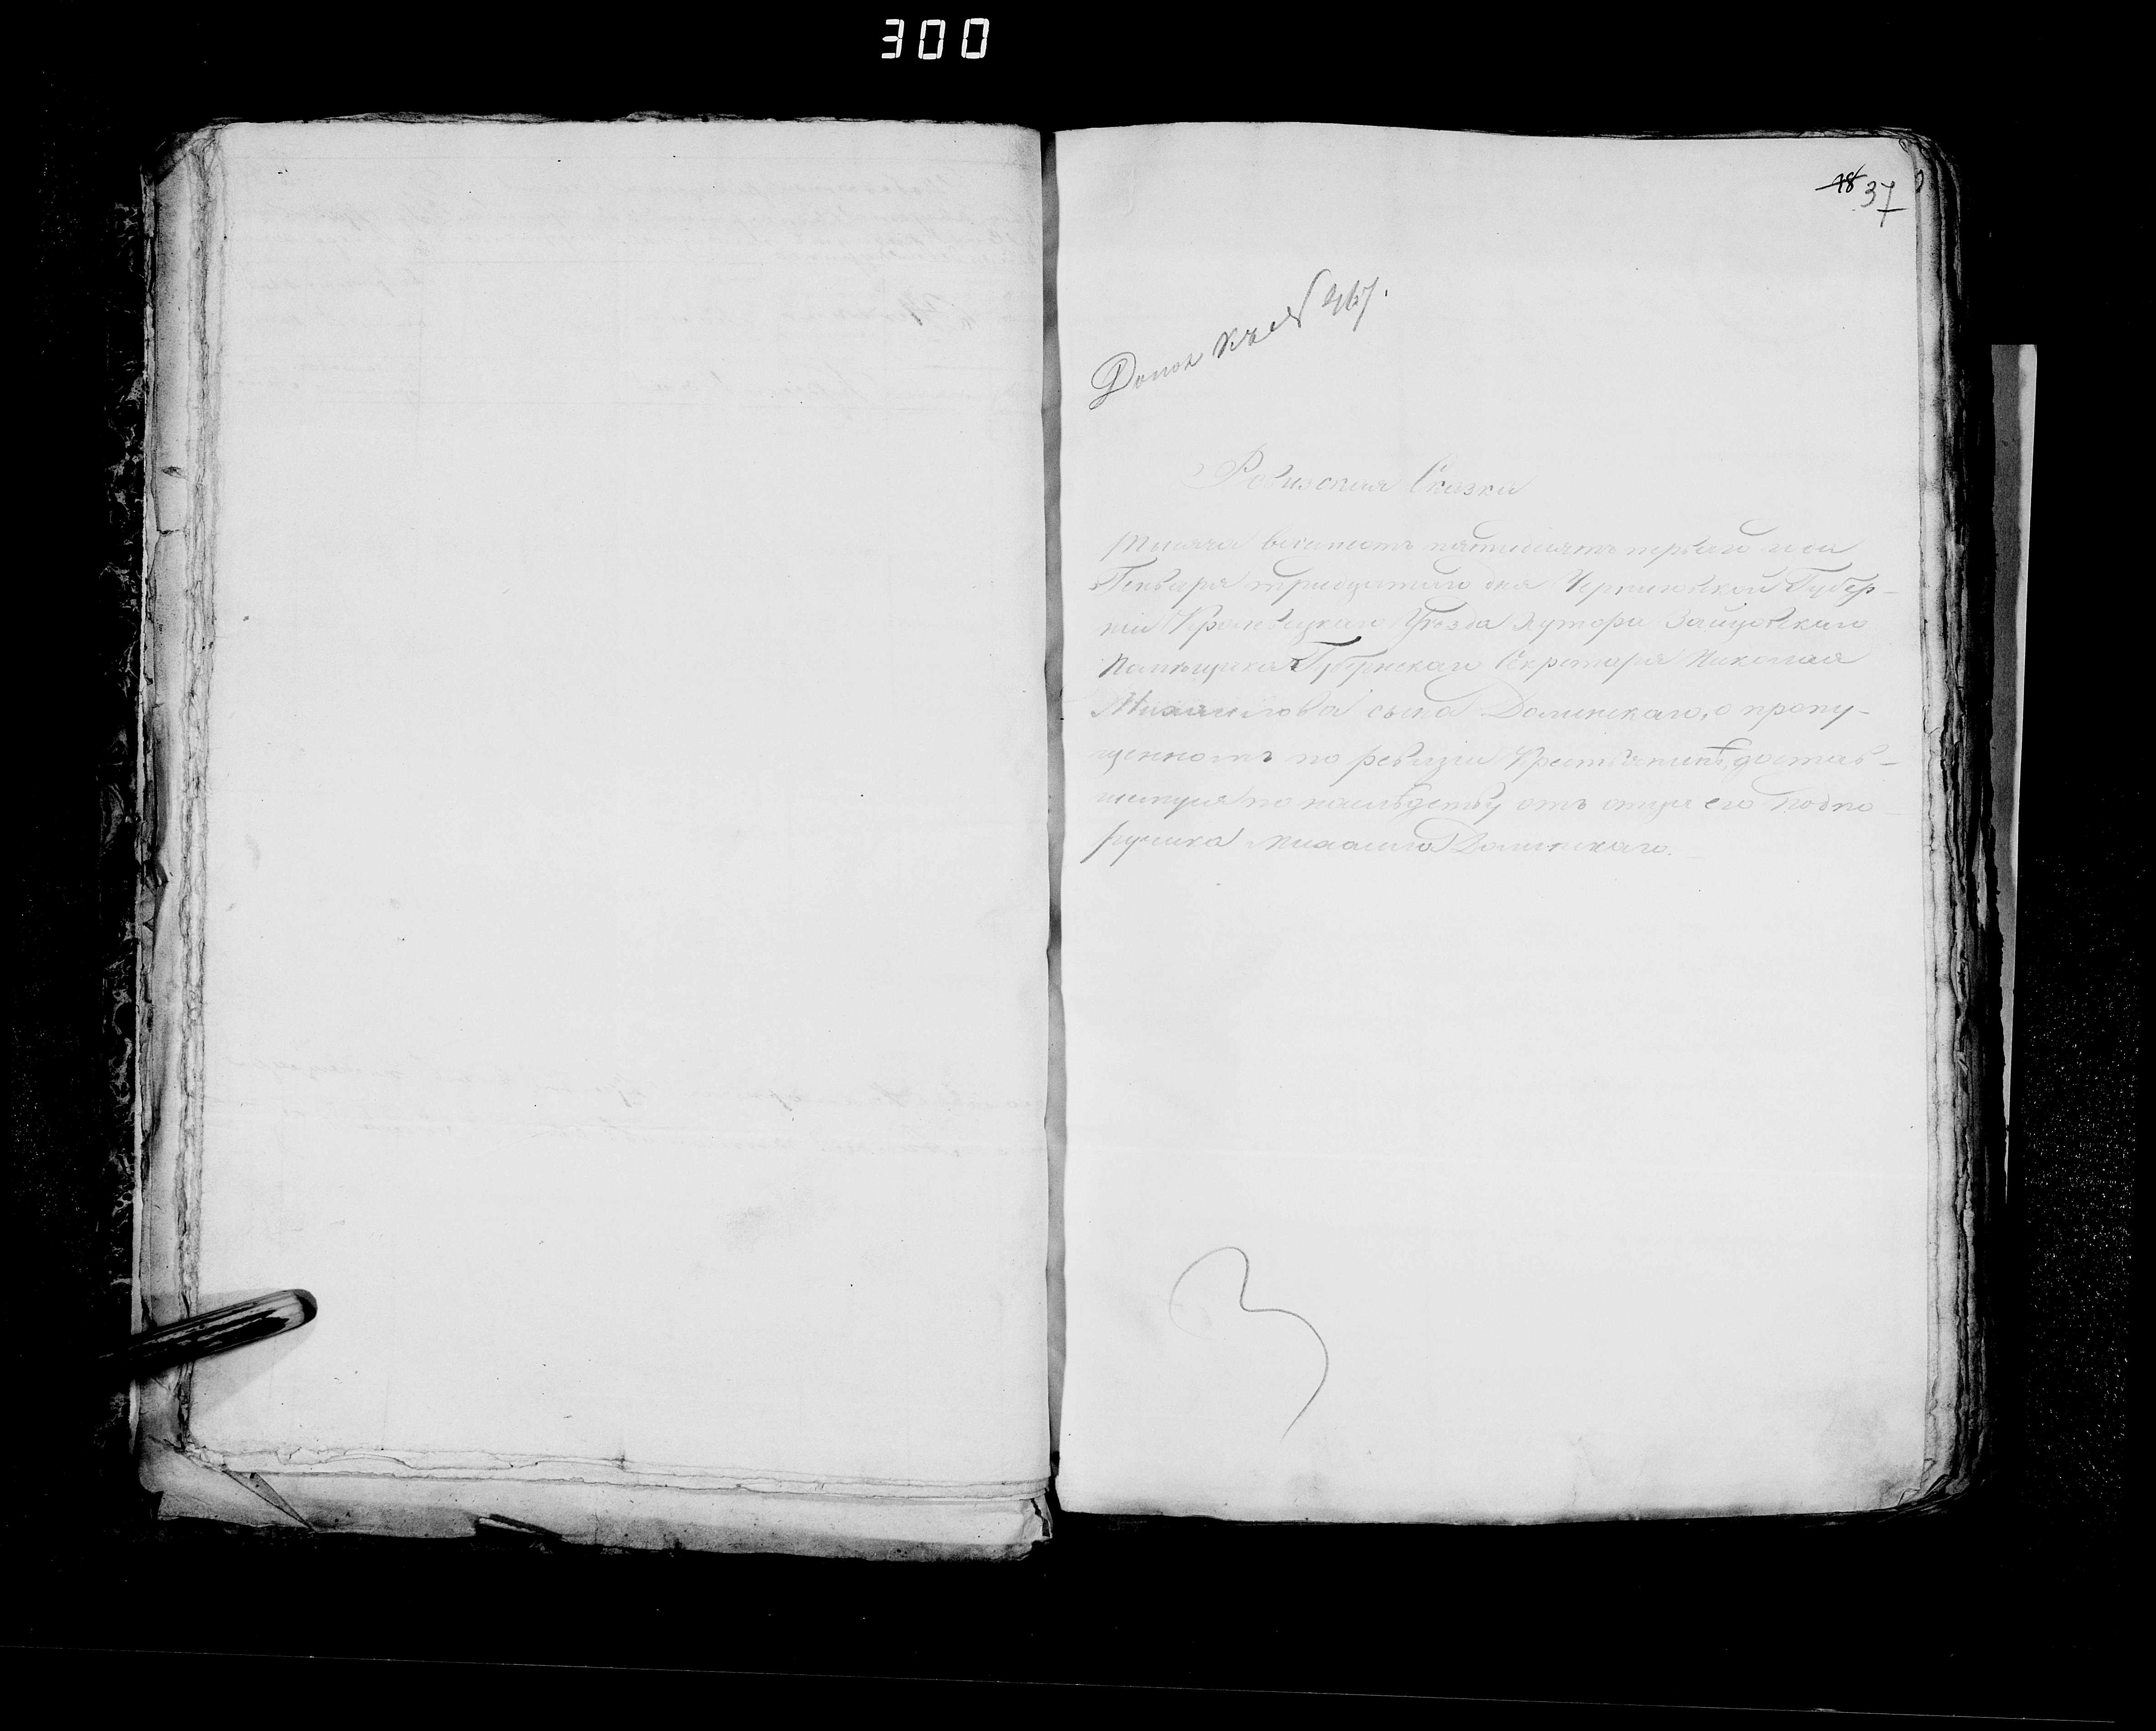 300
18 37
Допол къ №
Ревизская Сказка
Тысяча восимсотъ пятидесятъ перваго года
Генваря тридцатаго дня Черниговской Губер-
ніи Кролевецкаго Уѣзда хутора Зайцовскаго
Помѣщика Губернскаго Секретаря Николая
Михайлова сына Долинскаго, о пропу-
щенномъ по ревизіи Крестьянинѣ, достав-
шемуся по наслѣдству отъ отца его Подпо-
ручика Михаила Долинскаго.